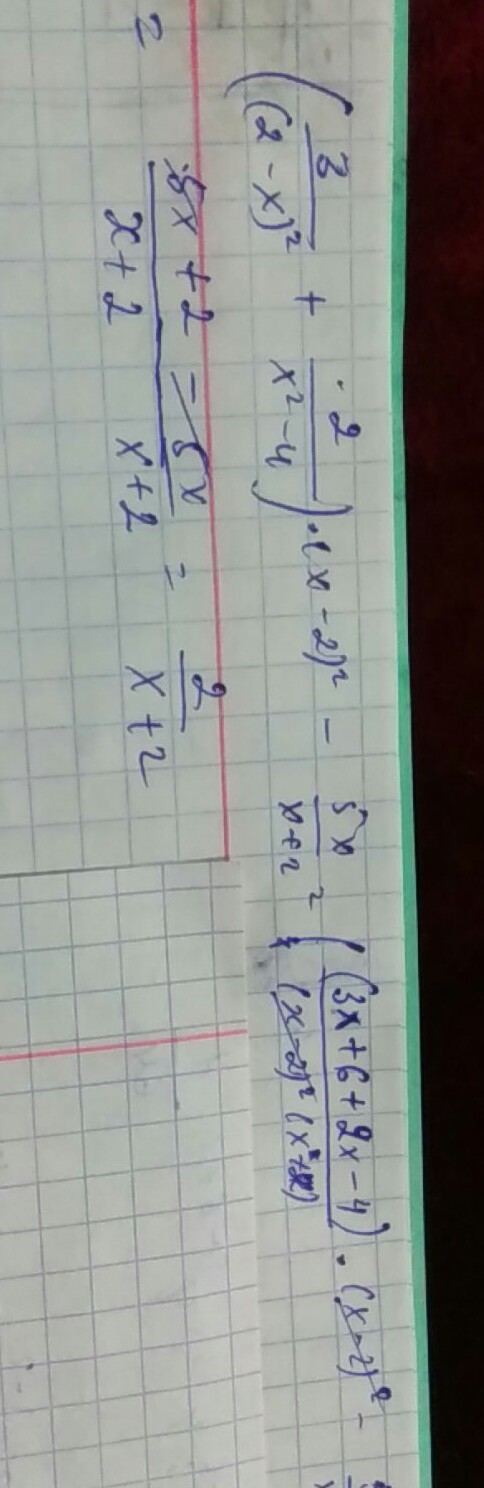 (3/(2-x)² + 2/(x²-4)) · (x-2)² - 5x/(x+2) = ((3x+6+2x-4)/((x-2)²(x+2))) · (x-2)² -
= (5x+2)/(x+2) - 5x/(x+2) = 2/(x+2)